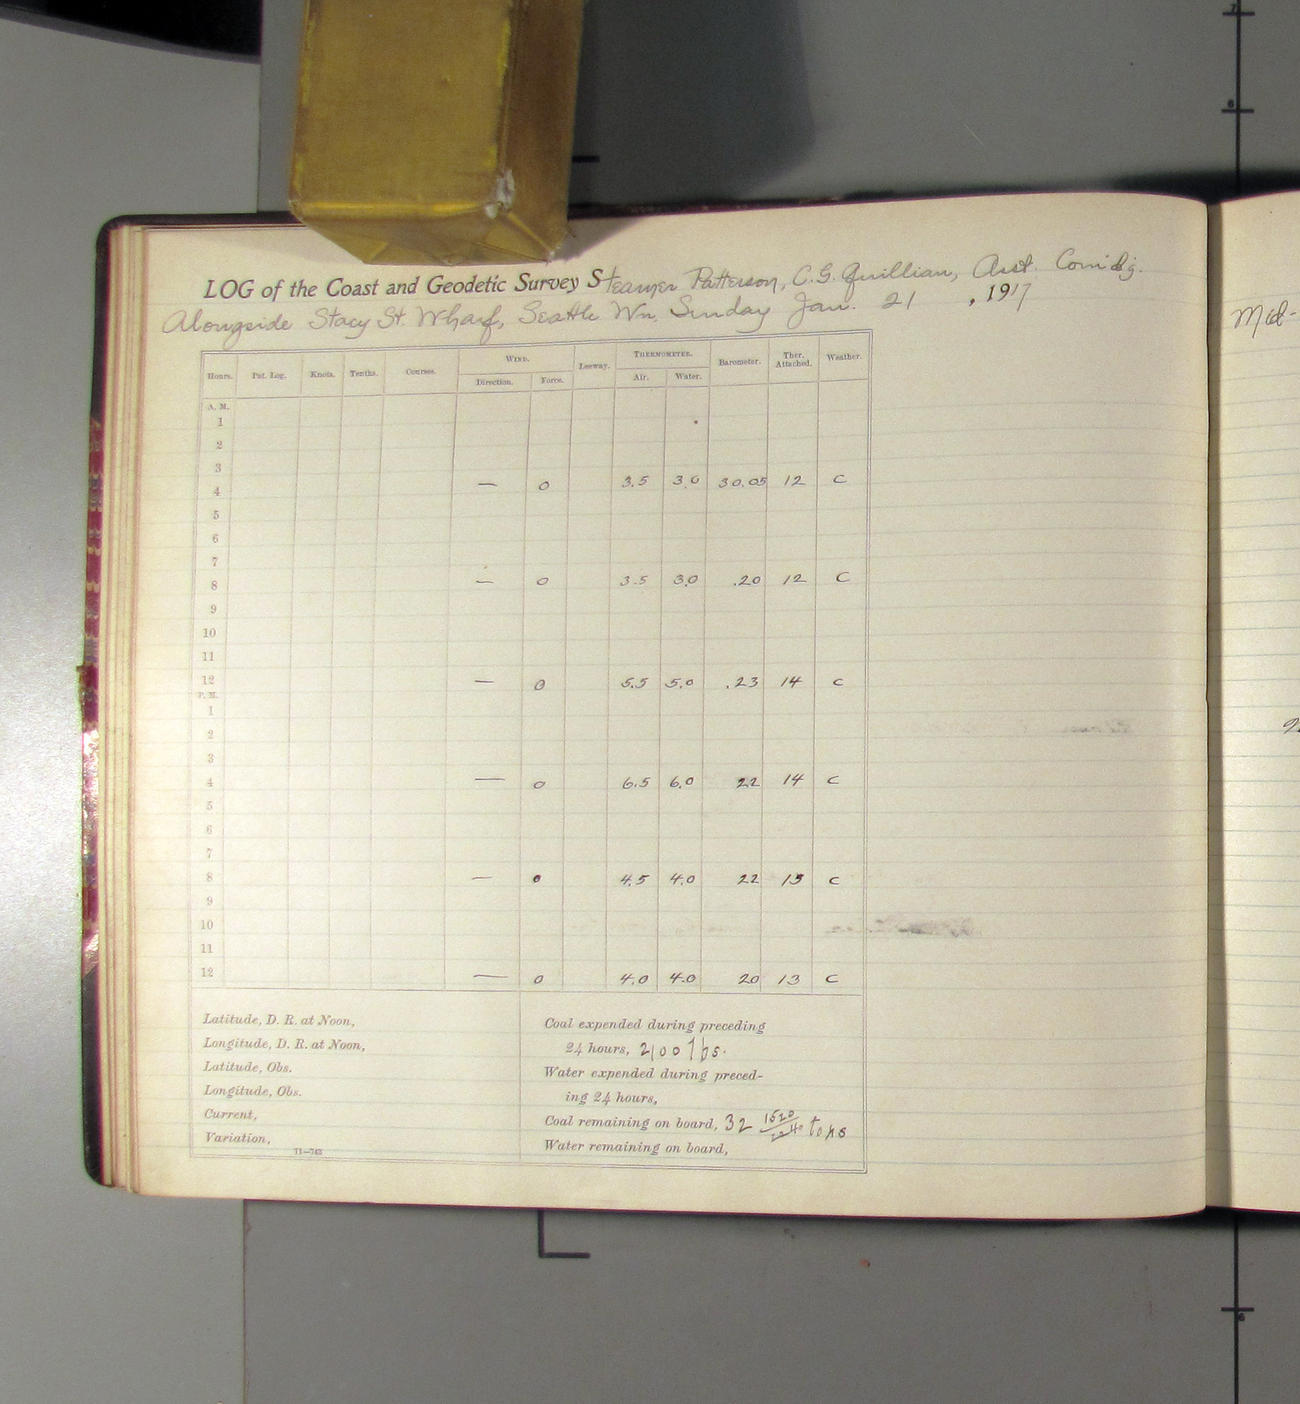 LOG of the Coast and Geodetic Survey Steamer Patterson, C.G. Quillian, Asst. Com'd'g.
Alongside Stacy St. Wharf, Seattle Wn. Sunday Jan. 21, 1917
Hours. Pat. Log. Knots. Tenths. Courses. WIND. Leeway. THERMOMETER. Barometer. Ther. Attached. Weather.
Direction. Force. Air. Water.
A. M.
1
2
3
4 — 0 3.5 3.0 30.05 12 C
5
6
7
8 — 0 3.5 3.0 .20 12 C
9
10
11
12 — 0 5.5 5.0 .23 14 C
P. M.
1
2
3
4 — 0 6.5 6.0 22 14 C
5
6
7
8 — 0 4.5 4.0 22 13 C
9
10
11
12 — 0 4.0 4.0 20 13 C
Latitude, D. R. at Noon,
Longitude, D. R. at Noon,
Latitude, Obs.
Longitude, Obs.
Current,
Variation,
11—743
Coal expended during preceding
24 hours, 2100 lbs.
Water expended during preced-
ing 24 hours,
Coal remaining on board, 32 1520/2240 tons
Water remaining on board,
Mid-